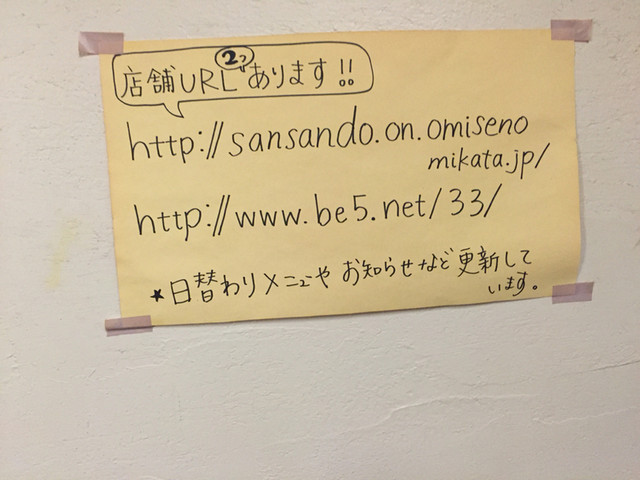 店舗URL2つあります!!
http://sansando.on.omiseno
mikata.jp/
http://www.be5.net/33/
★日替わりメニューや お知らせなど更新して
います。